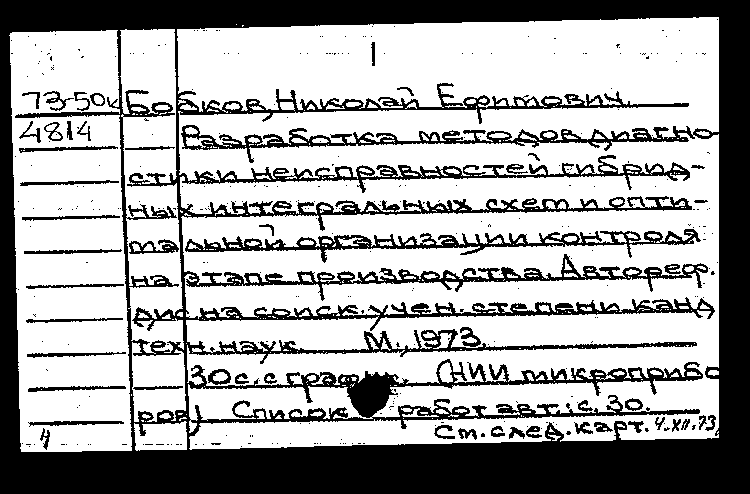 73-50к Бобков, Николай Ефимович.
4814 Разработка методов диагно-
стики неисправностей гибрид-
ных интегральных схем и опти-
мальной организации контроля
на этапе производства. Автореф.
дис на соиск. учен. степени канд
техн. наук. М., 1973.
30 с. с график. (НИИ микроприбо
ров) Список работ авт.: с. 30.
См. след. карт. 4.XII.73
4